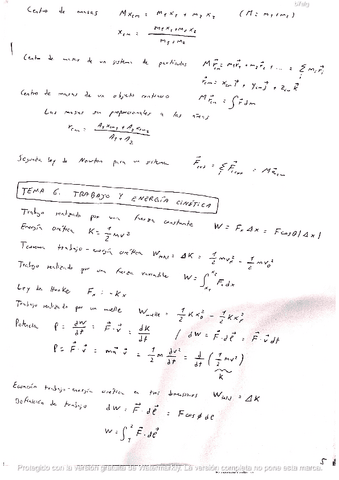 Centro de masas M x_cm = m₁x₁ + m₂x₂ (M = m₁+m₂)
x_cm = (m₁x₁ + m₂x₂)/(m₁ + m₂)
Centro de masas de un sistema de partículas M r⃗_cm = m₁r⃗₁ + m₂r⃗₂ + ... = Σ m_i r⃗_i
r⃗_cm = x_cm î + y_cm ĵ + z_cm k̂
Centro de masas de un objeto continuo M r⃗_cm = ∫ r⃗ dm
Las masas son proporcionales a las áreas
r_cm =
Segunda ley de Newton para un sistema F⃗ = Σ F⃗ = M a⃗_cm
TEMA 6. TRABAJO Y ENERGÍA CINÉTICA
Trabajo realizado por una fuerza constante W = F_x Δx = F cos θ |Δx|
Energía cinética K = 1/2 mv²
Teorema trabajo-energía cinética W = ΔK = 1/2 mv_f² - 1/2 mv_0²
Trabajo realizado por una fuerza variable W = ∫ F_x dx
Ley de Hooke F_x = -Kx
Trabajo realizado por un muelle W_muelle = 1/2 K x_0² - 1/2 K x_f²
Potencia P = dW/dt = F⃗ · v⃗ = dK/dt / dW = F⃗ · dl⃗ = F⃗ · v⃗ dt
P = F⃗ · v⃗ = m a⃗ v⃗ = 1/2 m dv²/dt = d/dt (1/2 mv²)
K
trabajo-energía cinética en tres dimensiones W = ΔK
Definición de trabajo dW = F⃗ · dl⃗ = F cos ϕ dl
W = ∫₁² F⃗ · dl⃗
5
Protegido con la versión gratuita de Watermarkly. La versión completa no pone esta marca.